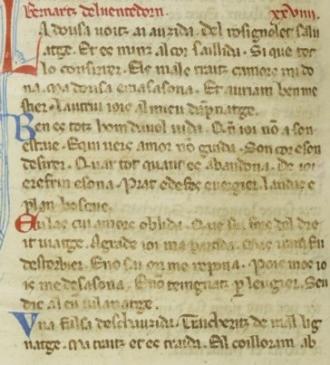 Bernartz deluentedorn. xxviiii.
La dousa uotz ai auzida. del rosignolet salu
atge. Et es minz al cor saillida. Si que tot
lo consirier. Els mals traitz camors mi do
na. Ma dousa emasasona. Et auriam ben me
stier. Lautrui iois al mieu dampnatge.
Ben es totz hom dauol uida. Con ioi non a son
estatge. Equi uers amor non guida. Son cor eson
desirer. Quar tot quant es abandona. De ioi
erefrin esona. Prat edeues euergier. Landas e
plan boscatge.
Eu las cui amors oblida. Que sui fors del dre
it uiatge. Agrada ioi ma partida. Mas
destorbier. E no sai on me repona. Pois mos io
is me desasona. E no tengatz per leugier. Sen
dic al cun uilanatge.
Vna falsa deschauzida. Trachiritz de mal lig
natge. Ma traitz et es traida. Eil coill ab